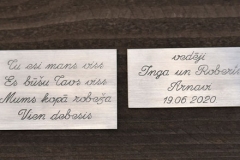 Tu esi mans viss
Es būšu Tavs viss
Mums kopā robeža
Vien debesis
vedēji
Inga un Roberts
Arnavi
19.06.2020